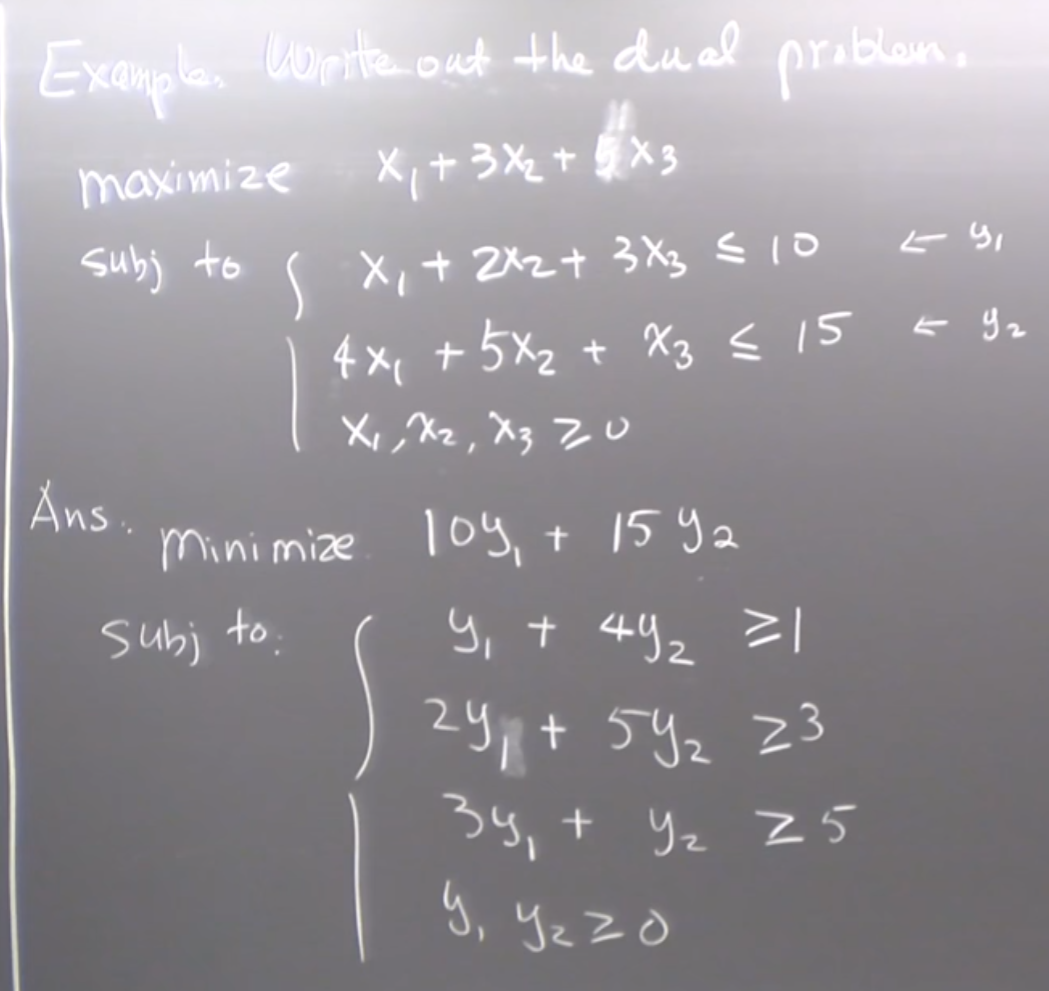 Example. Write out the dual problem.
maximize x₁ + 3x₂ + 5x₃
subj to { x₁ + 2x₂ + 3x₃ ≤ 10 ← y₁
4x₁ + 5x₂ + x₃ ≤ 15 ← y₂
x₁, x₂, x₃ ≥ 0
Ans. minimize 10y₁ + 15y₂
subj to: { y₁ + 4y₂ ≥ 1
2y₁ + 5y₂ ≥ 3
3y₁ + y₂ ≥ 5
y₁ y₂ ≥ 0